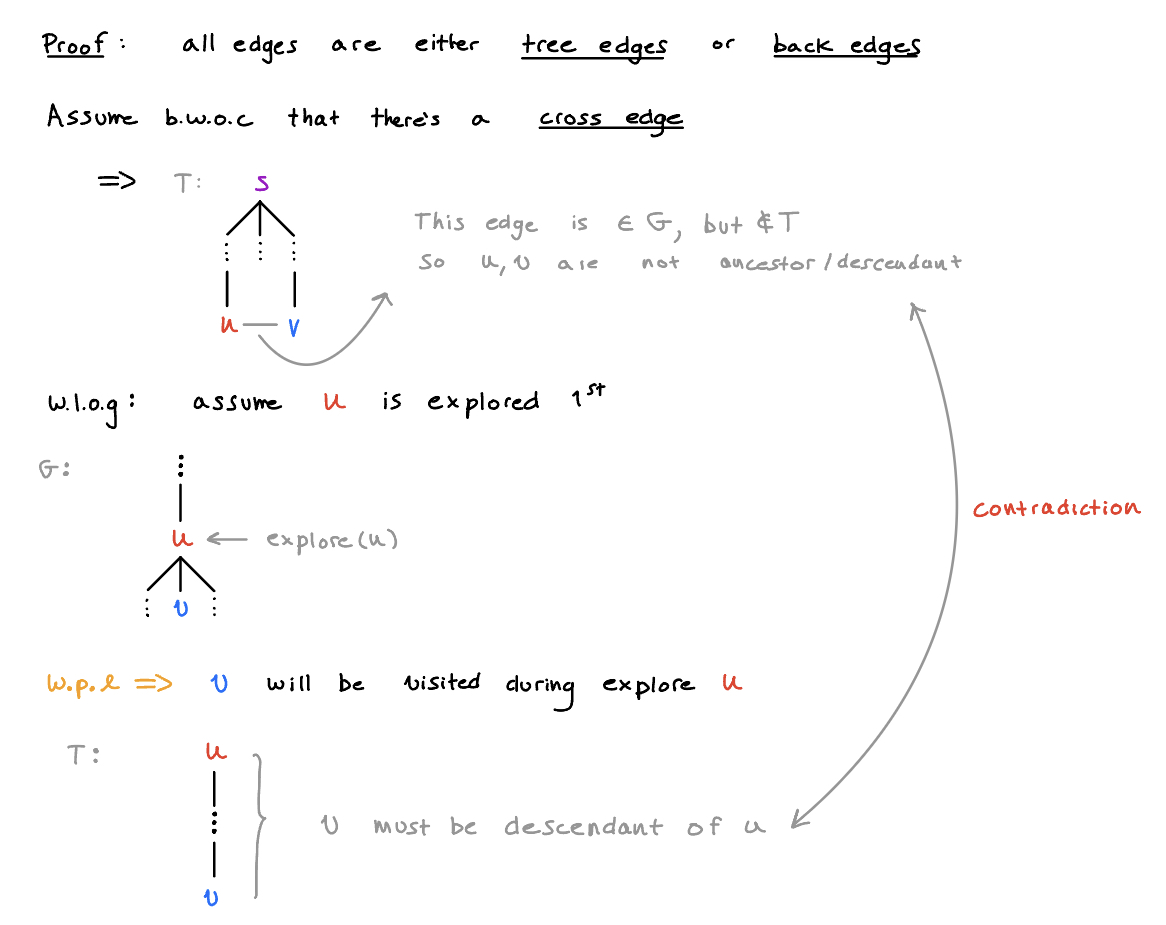 Proof: all edges are either tree edges or back edges
Assume b.w.o.c that there's a cross edge
=> T: s
This edge is ∈ G, but ∉ T
So u, v are not ancestor/descendant
u v
w.l.o.g: assume u is explored 1st
G:
u ← explore(u)
v
contradiction
w.p.l => v will be visited during explore u
T: u
v must be descendant of u
v